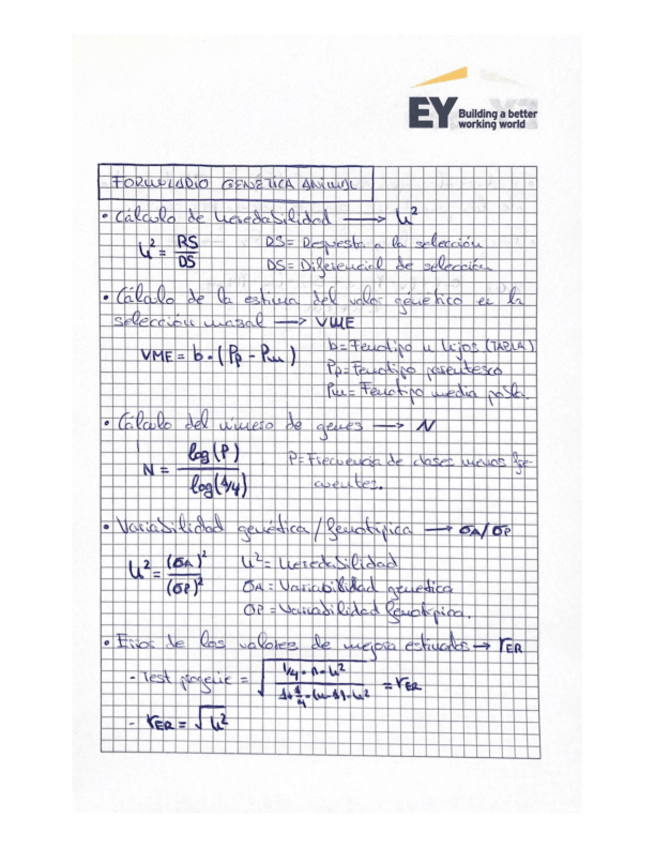 EY Building a better
working world
FORMULARIO GENÉTICA ANIMAL
• Cálculo de heredabilidad → h²
h² = RS / DS
DS = Respuesta a la selección
DS = Diferencial de selección
• Cálculo de la estima del valor génetico en la
selección masal → VME
VME = b · (Pp - Pm)
b = Fenotipo n hijos (TABLA)
Pp = Fenotipo parentesco
Pm = Fenotipo media pobl.
• Cálculo del número de genes → N
N = log(P) / log(1/4)
P = Frecuencia de clases menos fre-
cuentes.
• Variabilidad genética / fenotípica → σA/σP
h² = (σA)² / (σP)²
h² = Heredabilidad
σA = Variabilidad genetica
σP = Variabilidad fenotípica.
• de los valores de mejora estimados → rER
- Test progenie = √ 1/4 · n · h² / 1 + 1/4 · (n - 1) · h² = rER
- rER = √h²